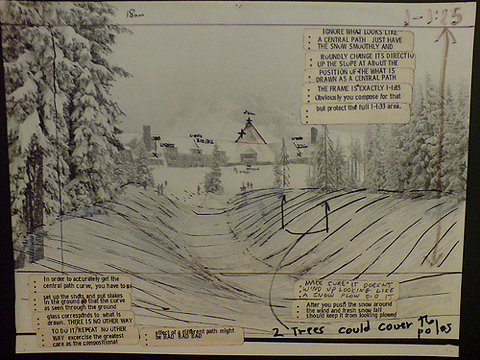 18mm
1-1:85
IGNORE WHAT LOOKS LIKE
A CENTRAL PATH JUST HAVE
THE SNOW SMOOTHLY AND
ROUNDLY CHANGE ITS DIRECTIO
UP THE SLOPE AT ABOUT THE
POSITION OF THE WHAT IS
DRAWN AS A CENTRAL PATH
THE FRAME IS EXACTLY 1-1:85
Obviously you compose for that
but protect the full 1-1:33 area.
In order to accurately get the
central path curve, you have to
set up the shots and put stakes
in the ground so that the curve
as seen through the ground
glass corresponds to what is
drawn. THERE IS NO OTHER WAY
TO DO IT. REPEAT NO OTHER
WAY exercise the greatest
care as the compositional
effect of a different path might
be BAD BAD BAD
MAKE SURE IT DOESN'T
WIND UP LOOKING LIKE
A SNOW PLOW DID IT
After you push the snow around
the wind and fresh snow fall
should keep it from looking plowed
2 Trees could cover the
poles